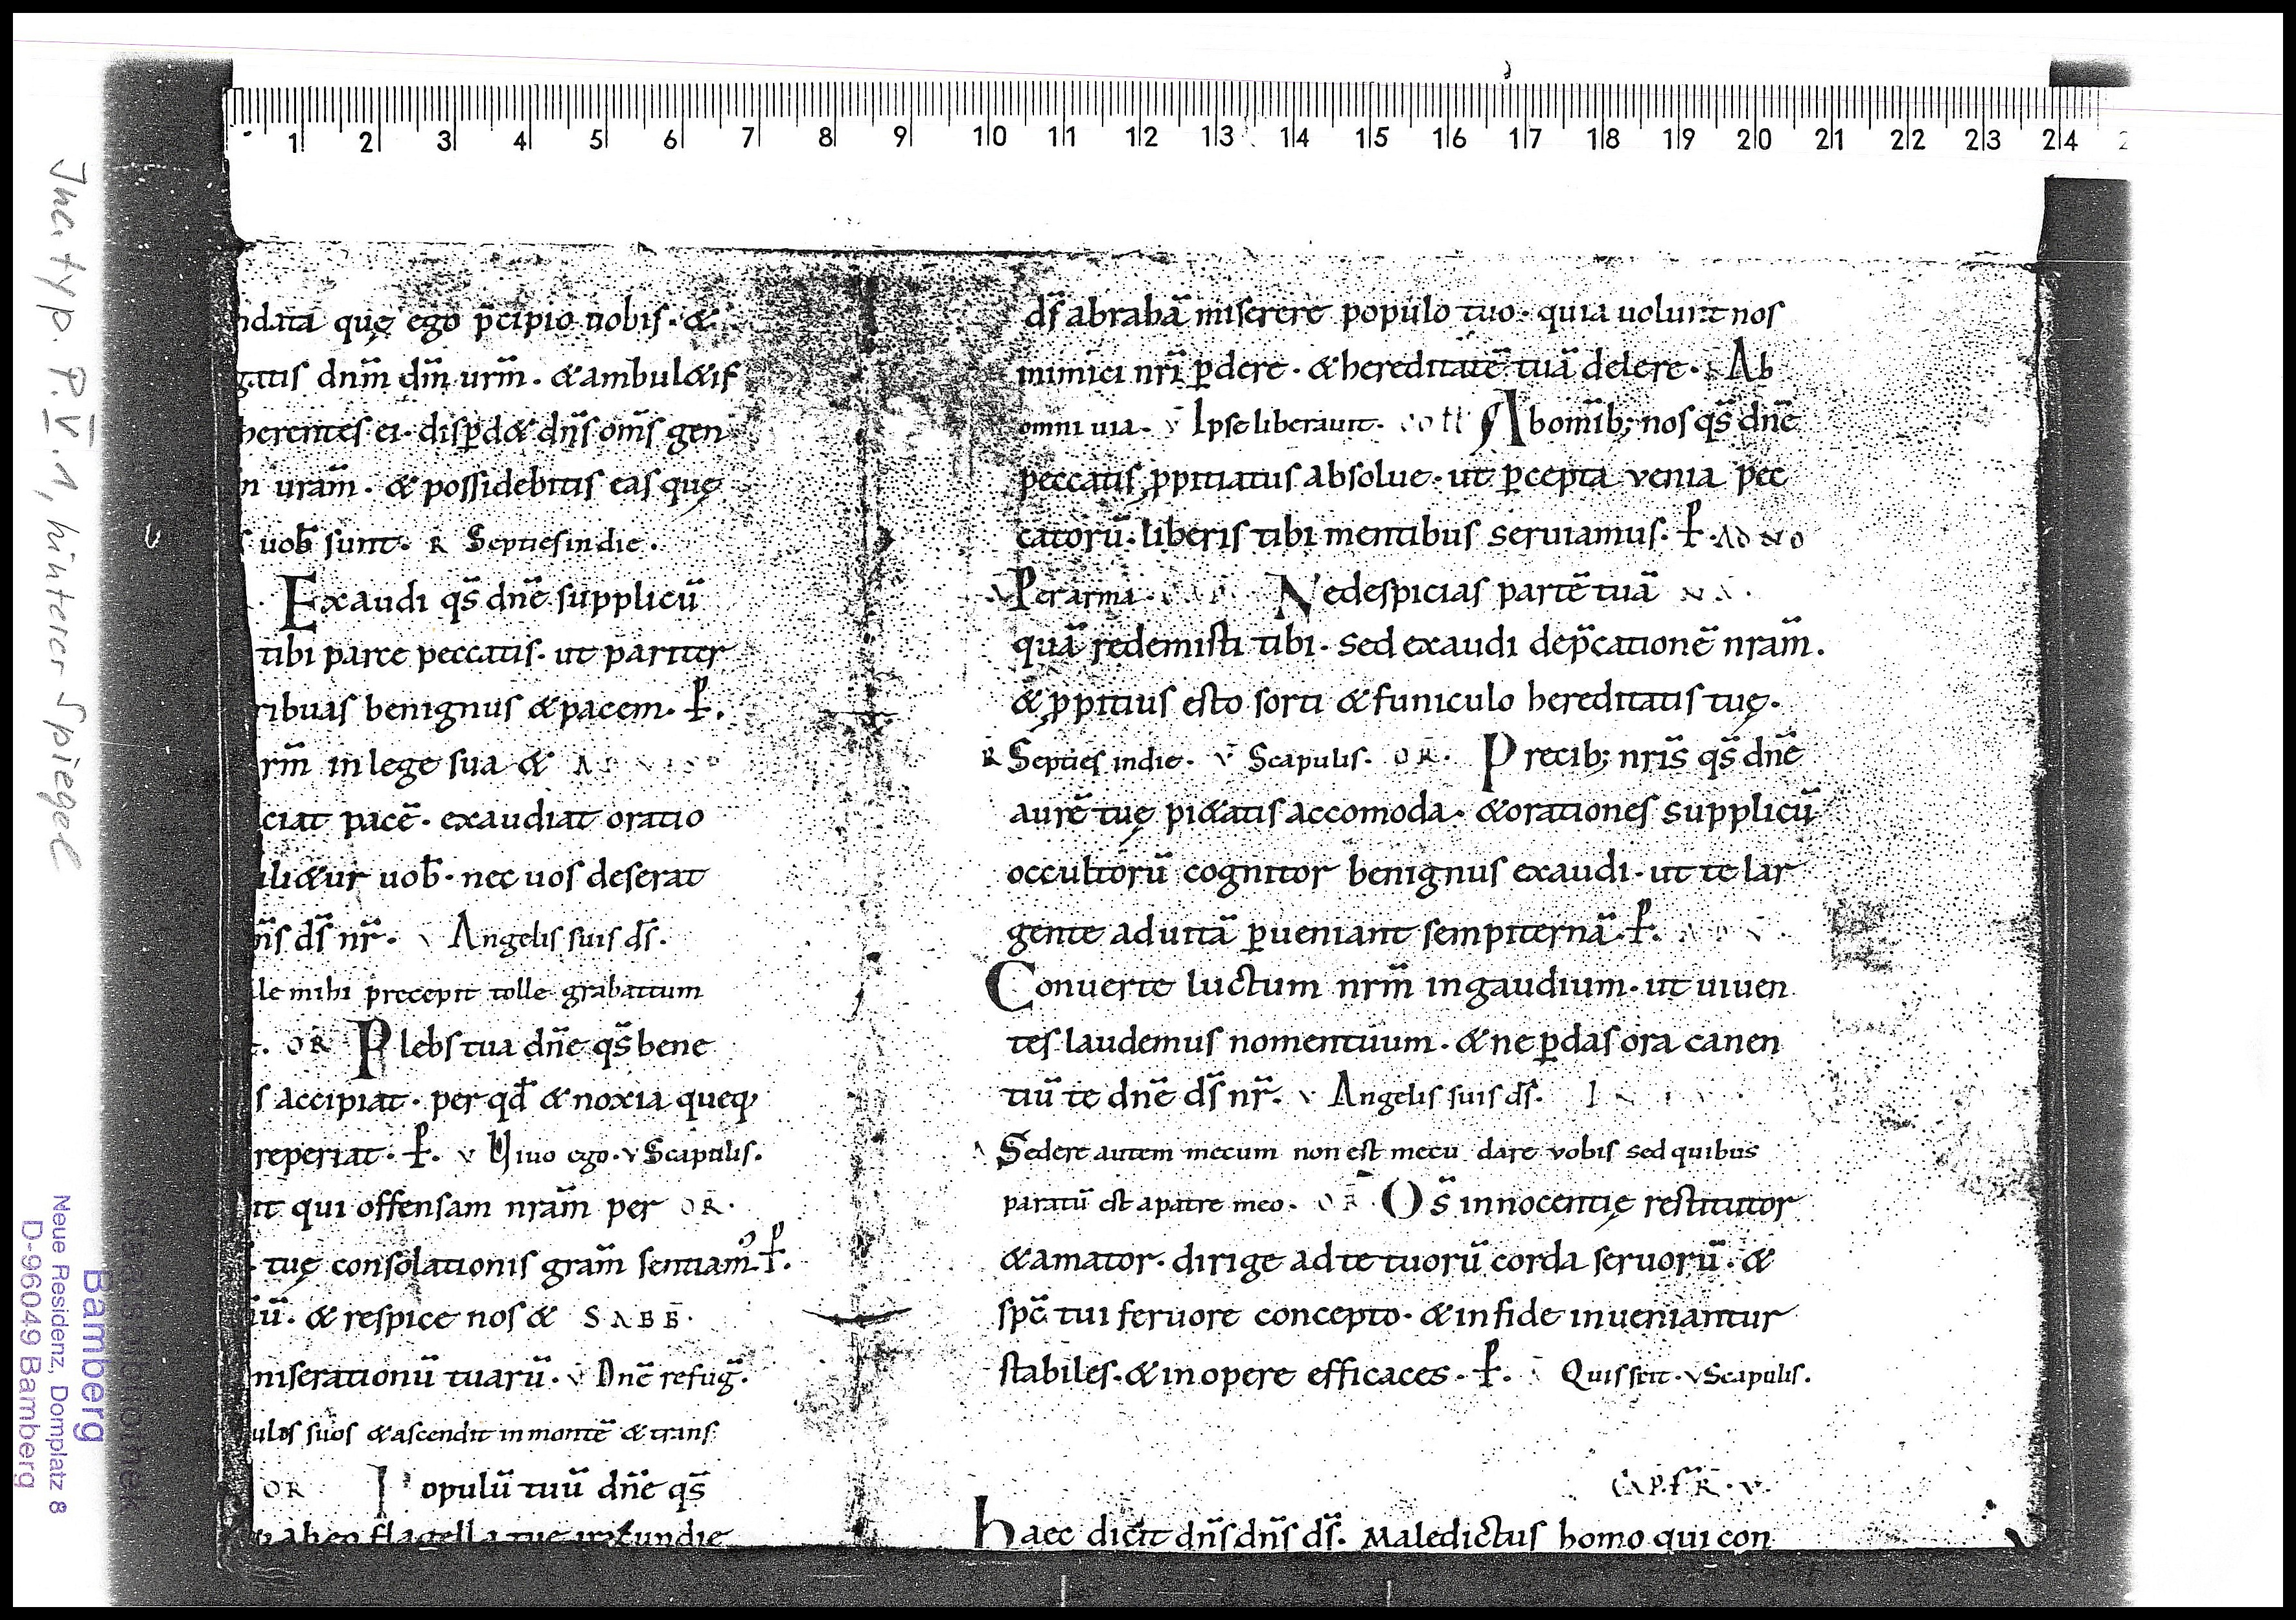 1 2 3 4 5 6 7 8 9 10 11 12 13 14 15 16 17 18 19 20 21 22 23 24
Inc. typ. P. V. 1, hinterer Spiegel
Staatsbibliothek
Bamberg
Neue Residenz, Domplatz 8
D-96049 Bamberg
ndata quę ego p̄cipio uobis · &
gatis dnm̄ dm̄ urm̄ · & ambul&if
herentes ei · disꝑd& dn̄s om̄s gen
n uram̄ · & possidebitis eas quę
s uob̄ sunt · R Septies in die ·
Exaudi qs̄ dnē supplicū
tibi parce peccatis · ut pariter
ribuas benignus & pacem · P̵ ·
rm̄ in lege sua &
ciat pacē · exaudiat oratio
ili&ur uob̄ · nec uos deserat
n̄s ds̄ nr̄ · v Angelis suis ds̄ ·
le mihi precepit tolle grabattum
OR Plebs tua dnē qs̄ bene
s accipiat · per qd̄ & noxia queq;
reperiat · P̵ · v Viuo ego · v Scapulis ·
it qui offensam nram̄ per OR ·
tuę consolationis gram̄ sentiam᾽ P̵ ·
ū · & respice nos & SABB̄ ·
miserationū tuarū · v Dnē refuḡ ·
ulos suos & ascendit in montē & trans
OR Populū tuū dnē qs̄
ab eo flagella tue iracundie
ds̄ abrahā miserere populo tuo · quia uolunt nos
inimici nri̅ ꝑdere · & hereditatē tuā delere · R Ab
omni uia · v Ipse liberauit · coll Ab om̄ib; nos qs̄ dnē
peccatis ꝓpitiatus absolue · ut ꝑcepta venia pec
catorū · liberis tibi mentibus seruiamus · P̵ · AD NO
Per arma · Ne despicias partē tuā
quā redemisti tibi · sed exaudi dep̄cationē nram̄ ·
& ꝓpitius esto sorti & funiculo hereditatis tuę ·
R Septies in die · v Scapulis · OR · Precib; nris̄ qs̄ dnē
aurē tuę pi&atis accomoda · & orationes supplicū
occultorū cognitor benignus exaudi · ut te lar
gente ad uitā ꝑueniant sempiternā · P̵ ·
Conuerte luctum nrm̄ in gaudium · ut uiuen
tes laudemus nomen tuum · & ne ꝑdas ora canen
tiū te dnē ds̄ nr̄ · v Angelis suis ds̄ ·
Sedere autem mecum non est mecū dare vobis sed quibus
paratū est a patre meo · OR Ds̄ innocentię restitutor
& amator · dirige ad te tuorū corda seruorū · &
spc̄ tui feruore concepto · & in fide inueniantur
stabiles · & in opere efficaces · P̵ · Quis scit · v Scapulis ·
CAP. FR · V ·
haec dicit dn̄s dn̄s ds̄ · Maledictus homo qui con